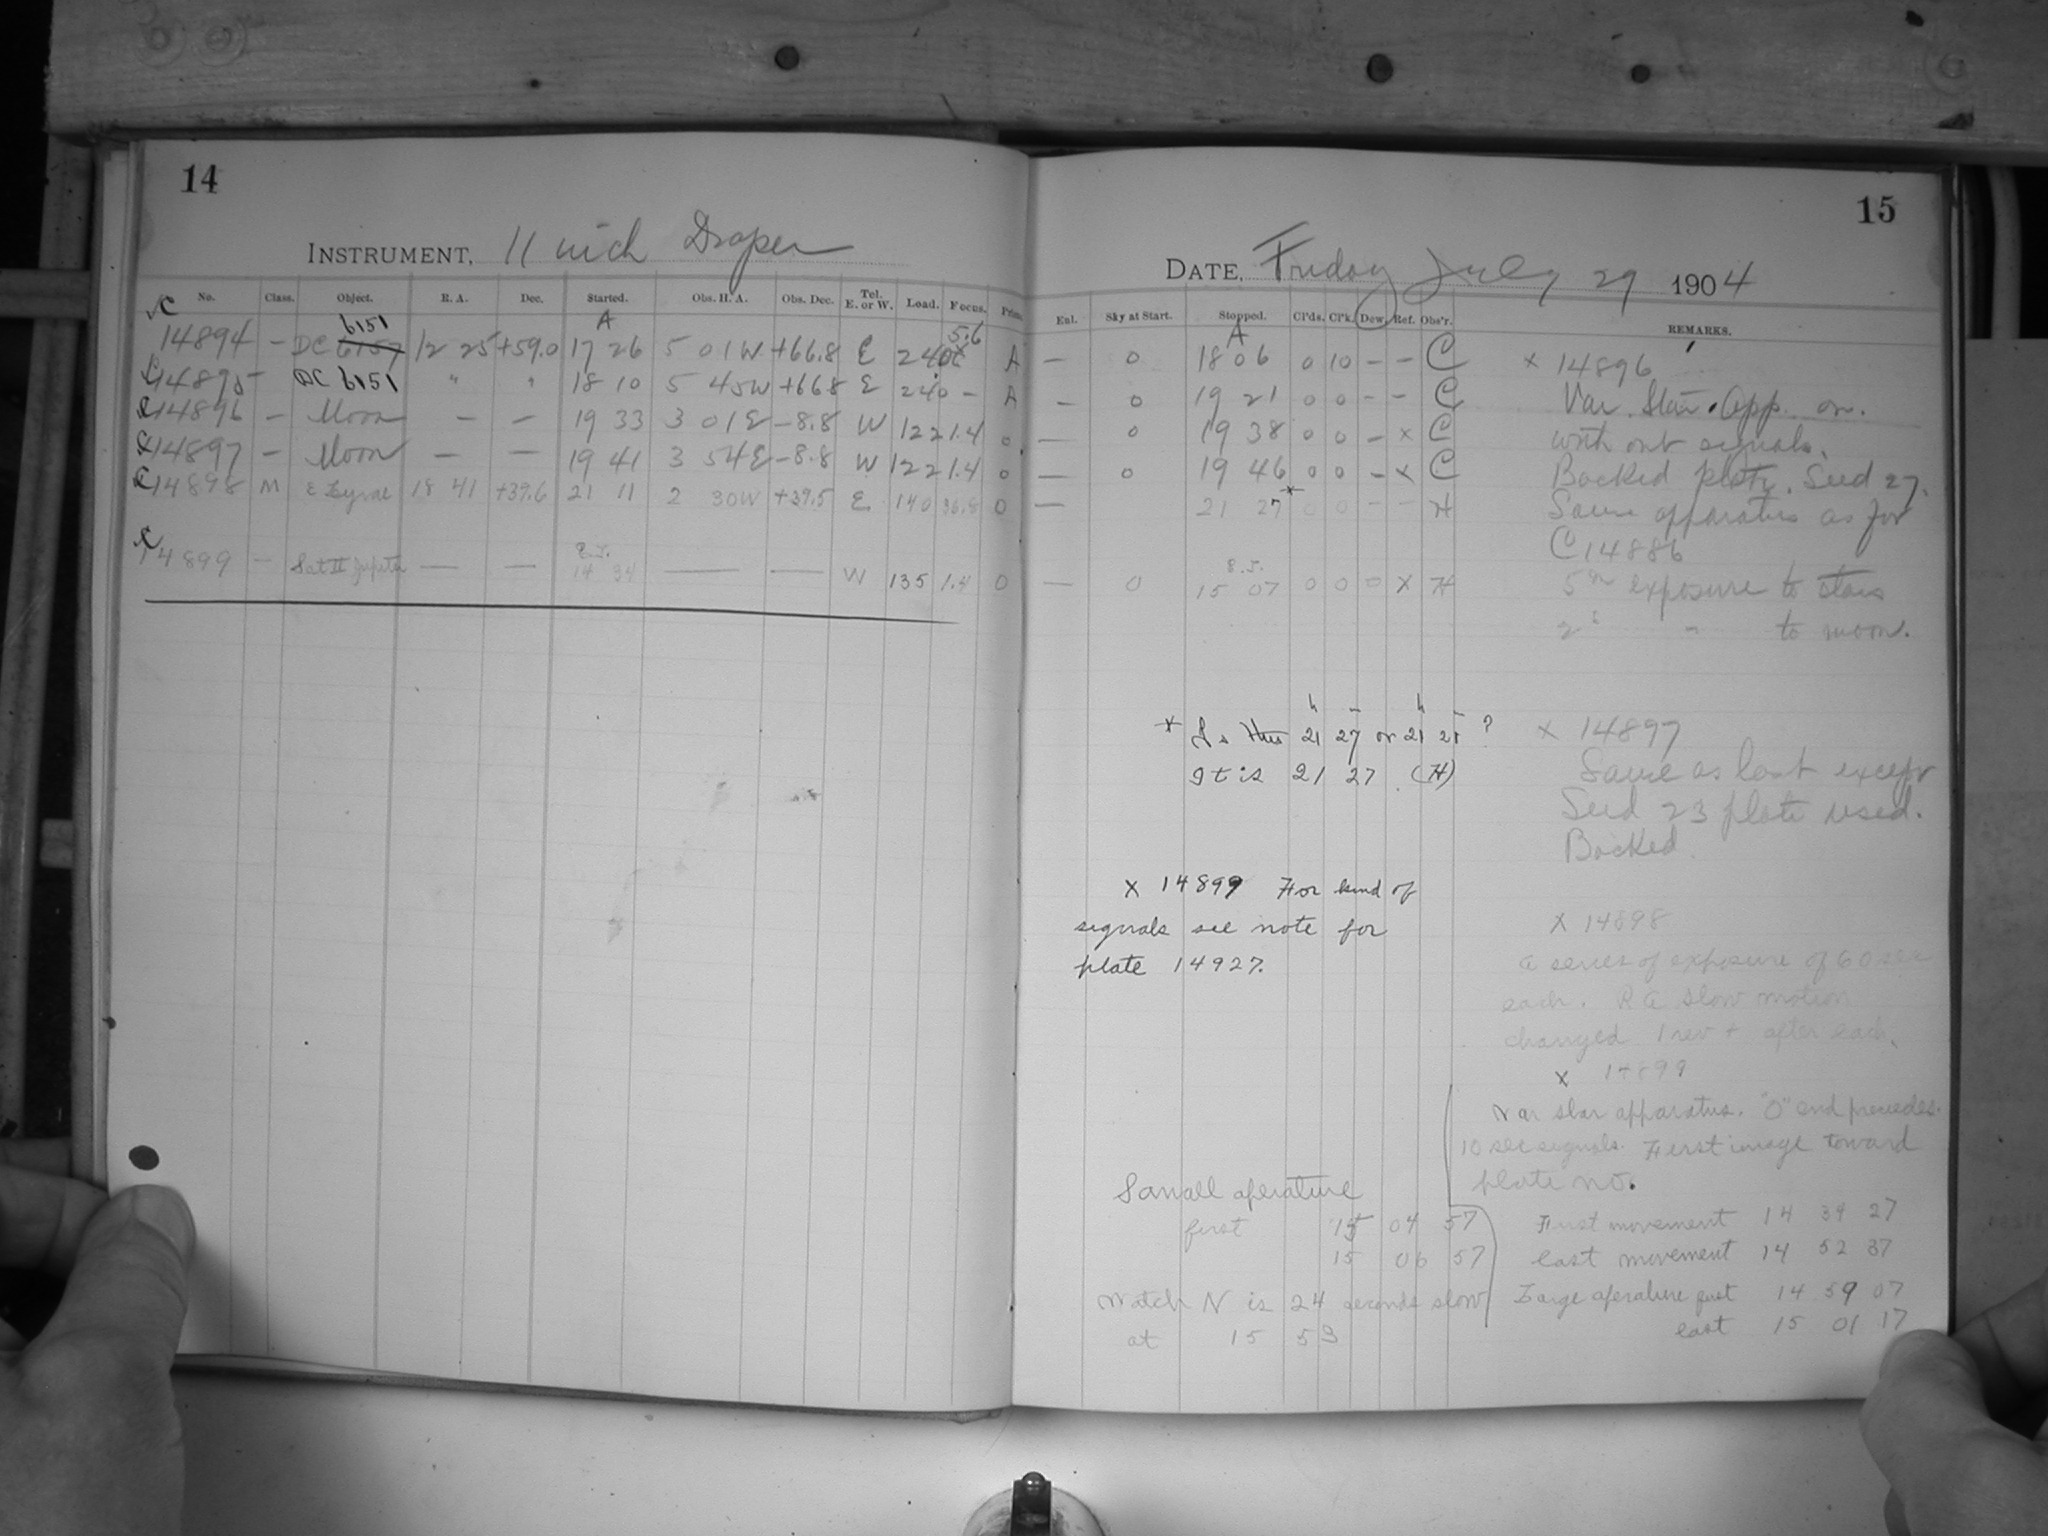 14
INSTRUMENT. 11 inch Draper
No. Class. Object. R. A. Dec. Started. Obs. H. A. Obs. Dec. Tel. E. or W. Load. Focus. Prism.
6151 A 5.6
14894 — DC 6157 12 25 +59.0 17 26 5 01W +66.8 E 240 A
C14895 — DC 6151 " " 18 10 5 45W +66.8 E 240 — A
C14896 — Moon — — 19 33 3 01E -8.8 W 122 1.4 0
C14897 — Moon — — 19 41 3 54E -8.8 W 122 1.4 0
C14898 M ε Lyrae 18 41 +39.6 21 11 2 30W +39.5 E 140 36.8 0
14899 — Sat II Jupiter — — 14 34 — — W 135 1.4 0
15
DATE. Friday July 29 1904
Enl. Sky at Start. Stopped. Cl'ds. Cl'k. Dew. Ref. Obs'r. REMARKS.
A
— 0 18 06 0 10 — — C
— 0 19 21 0 0 — — C
— 0 19 38 0 0 — x C
— 0 19 46 0 0 — x C
— 21 27* 0 0 — — H
— 0 15 07 0 0 0 x H
x 14896
Var. Star. App. on.
without signals.
Backed plate. Seed 27.
Same apparatus as for
C14886
5m exposure to stars
2s " to moon.
* Is this 21h 27m or 21h 21m ?
It is 21 27 (H)
x 14897
Same as last except
Seed 23 plate used.
Backed.
x 14899 For kind of
signals see note for
plate 14927.
x 14898
a series of exposure of 60 sec
each. R A slow motion
changed 1 rev + after each.
x 14899
Var star apparatus. "O" end precedes.
10 sec signals. First image toward
plate no.
First movement 14 34 27
last movement 14 52 37
Large aperature first 14 59 07
last 15 01 17
Samall aperature
first 15 04 57
15 06 57
Watch N is 24 seconds slow
at 15 53